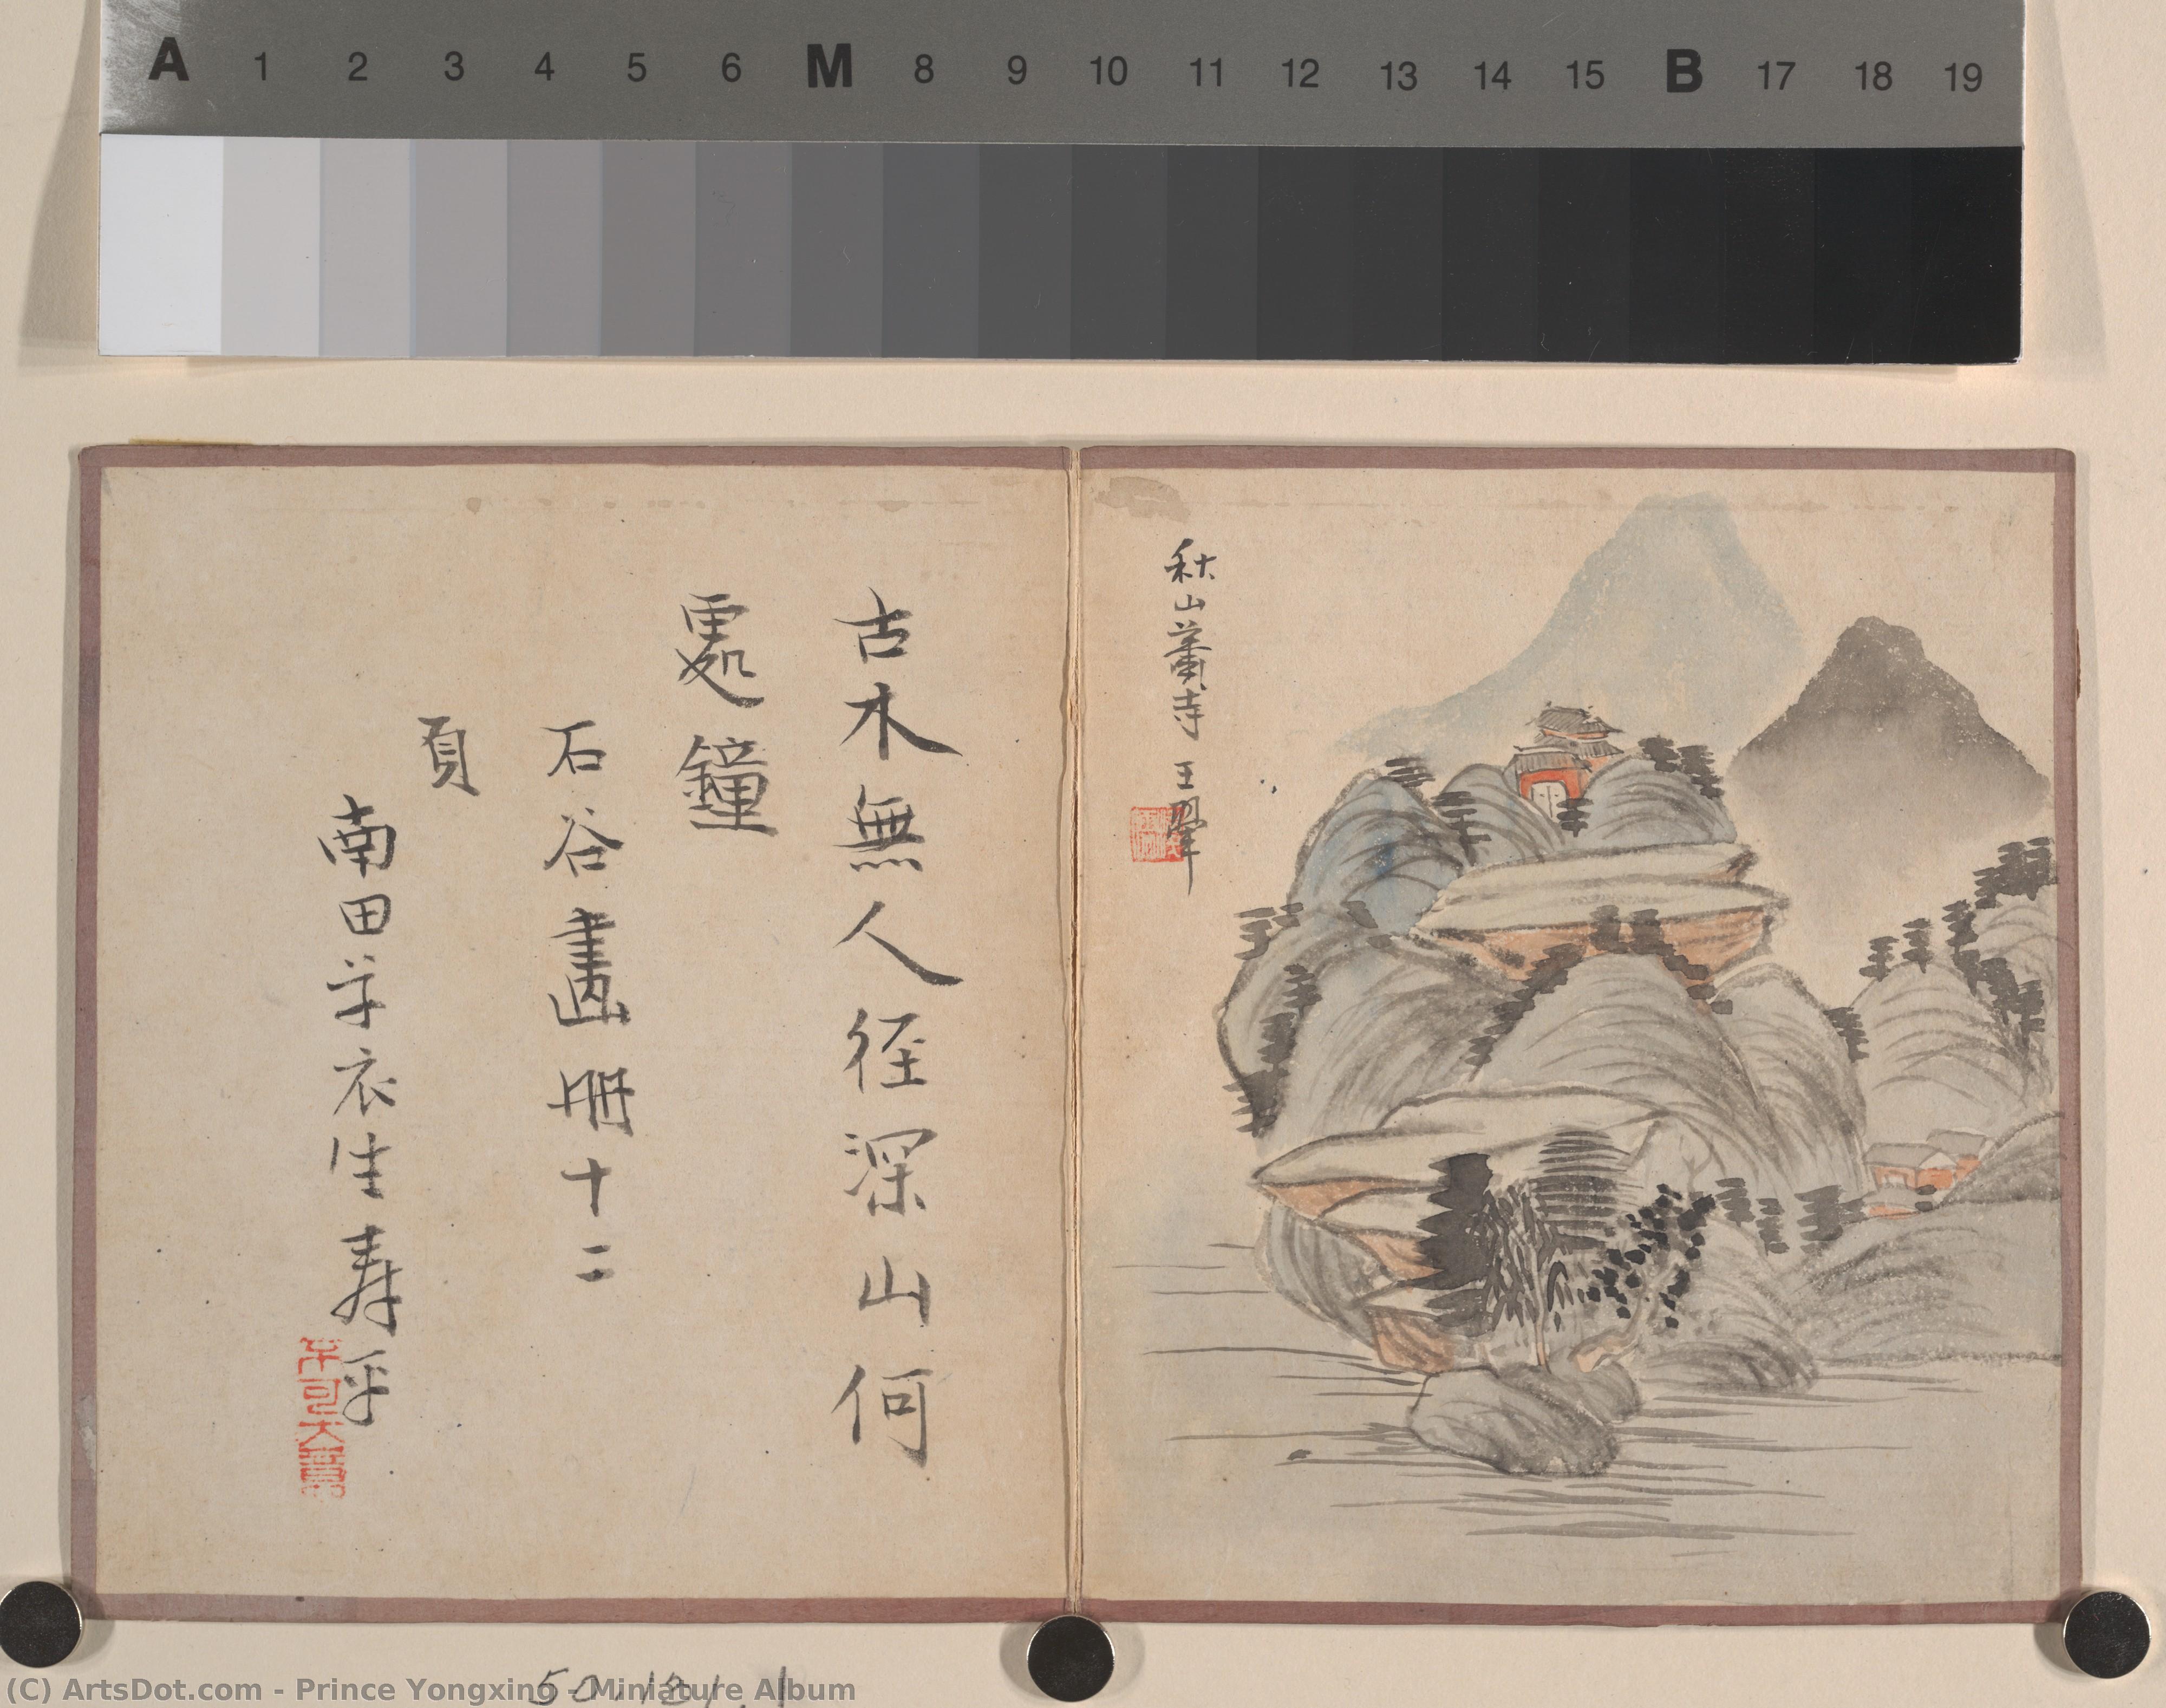 A 1 2 3 4 5 6 M 8 9 10 11 12 13 14 15 B 17 18 19
秋山蕭寺 王翬
古木無人徑深山何
處鐘
石谷畫冊十二
頁
南田草衣生寿平
(C) ArtsDot.com - Prince Yongxing - Miniature Album